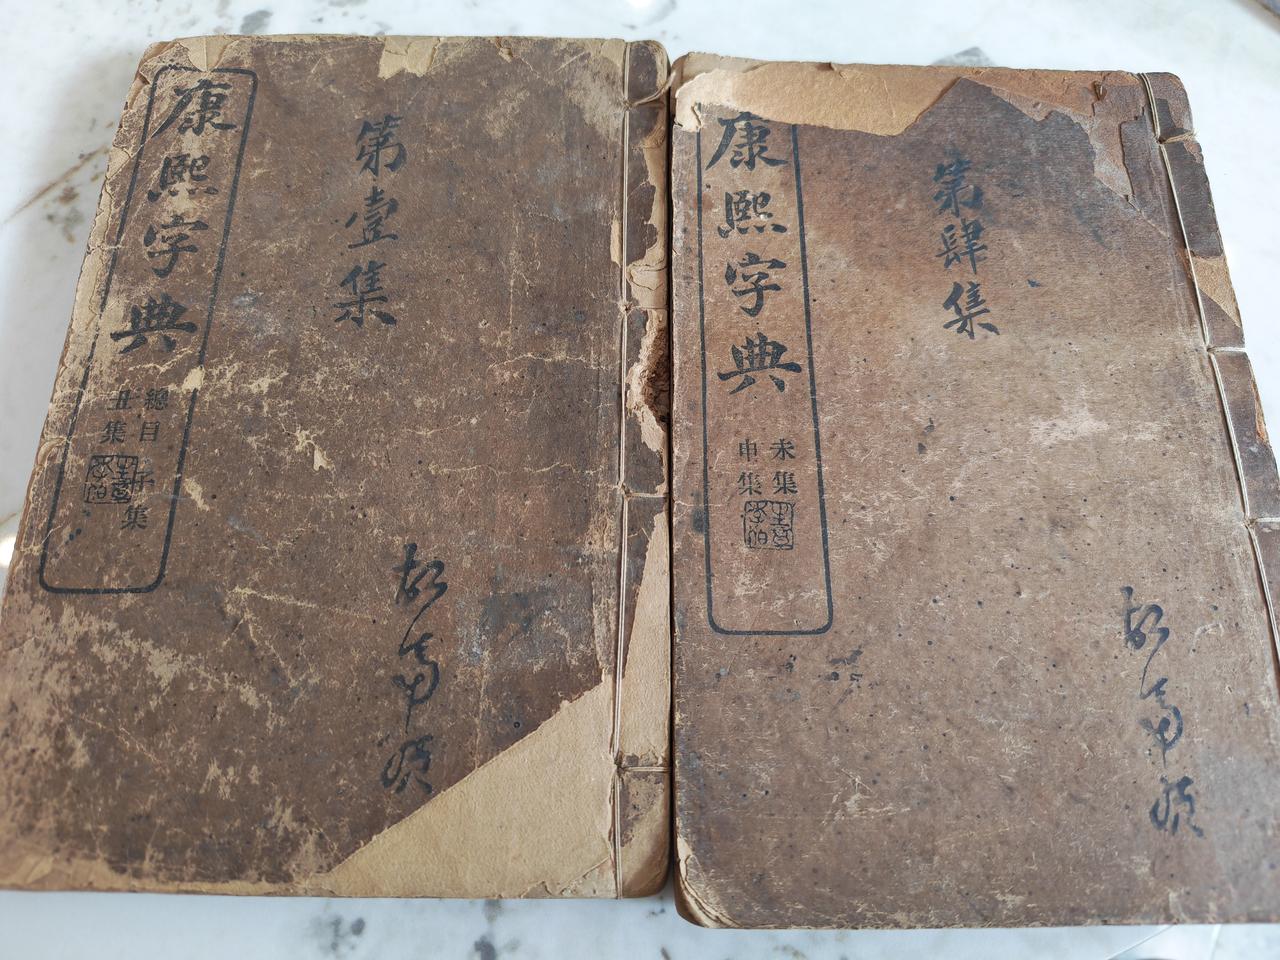 康熙字典
總目 子集
丑集
第壹集
康熙字典
未集
申集
第肆集